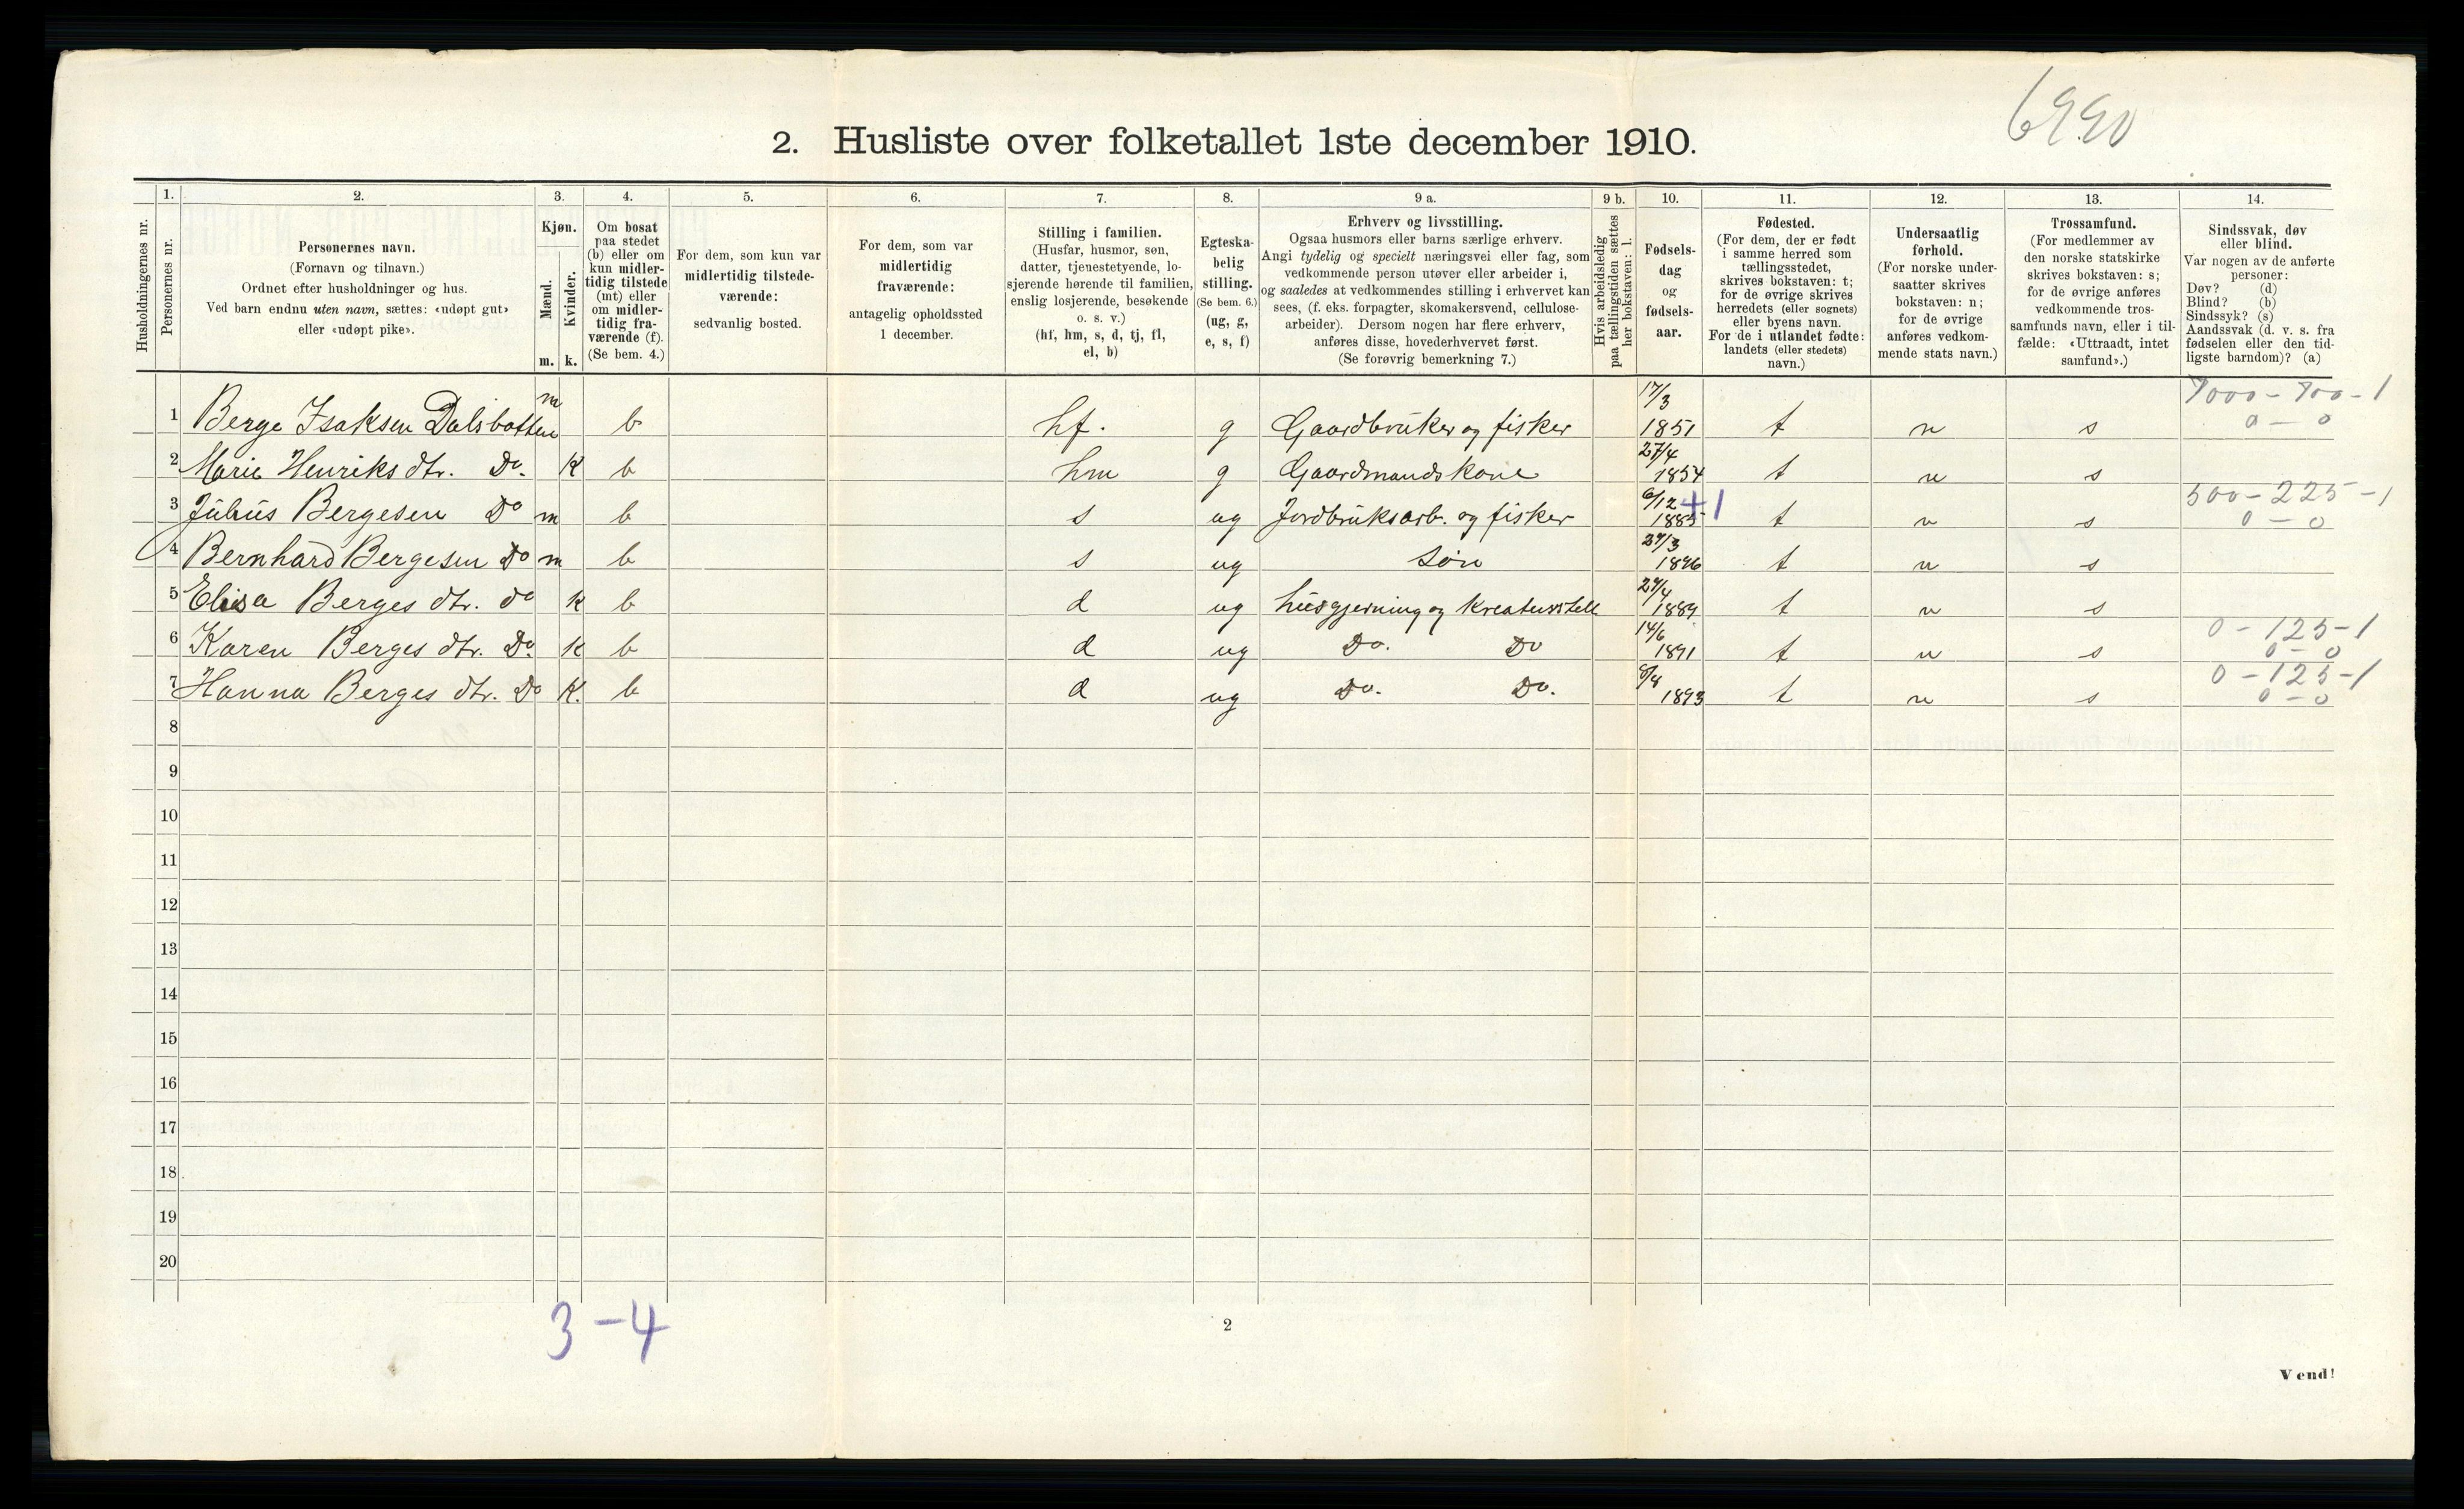 6990
2. Husliste over folketallet 1ste december 1910.
Husholdningernes nr.
1.
Personernes nr.
2.
Personernes navn.
(Fornavn og tilnavn.)
Ordnet efter husholdninger og hus.
Ved barn endnu uten navn, sættes: «udøpt gut»
eller «udøpt pike».
3.
Kjøn.
Mænd.
Kvinder.
m. k.
4.
Om bosat
paa stedet
(b) eller om
kun midler-
tidig tilstede
(mt) eller
om midler-
tidig fra-
værende (f).
(Se bem. 4.)
5.
For dem, som kun var
midlertidig tilstede-
værende:
sedvanlig bosted.
6.
For dem, som var
midlertidig
fraværende:
antagelig opholdssted
1 december.
7.
Stilling i familien.
(Husfar, husmor, søn,
datter, tjenestetyende, lo-
sjerende hørende til familien,
enslig losjerende, besøkende
o. s. v.)
(hf, hm, s, d, tj, fl,
el, b)
8.
Egteska-
belig
stilling.
(Se bem. 6.)
(ug, g,
e, s, f)
9 a.
Erhverv og livsstilling.
Ogsaa husmors eller barns særlige erhverv.
Angi tydelig og specielt næringsvei eller fag, som
vedkommende person utøver eller arbeider i,
og saaledes at vedkommendes stilling i erhvervet kan
sees, (f. eks. forpagter, skomakersvend, cellulose-
arbeider). Dersom nogen har flere erhverv,
anføres disse, hovederhvervet først.
(Se forøvrig bemerkning 7.)
9 b.
Hvis arbeidsledig
paa tællingstiden sættes
her bokstaven: l.
10.
Fødsels-
dag
og
fødsels-
aar.
11.
Fødested.
(For dem, der er født
i samme herred som
tællingsstedet,
skrives bokstaven: t;
for de øvrige skrives
herredets (eller sognets)
eller byens navn.
For de i utlandet fødte:
landets (eller stedets)
navn.)
12.
Undersaatlig
forhold.
(For norske under-
saatter skrives
bokstaven: n;
for de øvrige
anføres vedkom-
mende stats navn.)
13.
Trossamfund.
(For medlemmer av
den norske statskirke
skrives bokstaven: s;
for de øvrige anføres
vedkommende tros-
samfunds navn, eller i til-
fælde: «Uttraadt, intet
samfund».)
14.
Sindssvak, døv
eller blind.
Var nogen av de anførte
personer:
Døv? (d)
Blind? (b)
Sindssyk? (s)
Aandssvak (d. v. s. fra
fødselen eller den tid-
ligste barndom)? (a)
1 Berge Isaksen Dalsbotten m b hf. g Gaardbruker og fisker 17/3 1851 t n s 7000-700-1 0-0
2 Marie Henriks dtr. Do. K b hm g Gaardmandskone 27/4 1854 t n s
3 Julius Bergesen Do m b s ug Jordbruksarb. og fisker 6/12 1885 +1 t n s 500-225-1 0-0
4 Bernhard Bergesen Do m b s ug søn 1896 t n s
5 Elisa Berges dtr. do k b d ug husgjerning og kreaturstell 1889 t n s
6 Karen Berges dtr. Do. k b d ug Do. Do 14/6 1891 t n s 0-125-1 0-0
7 Hanna Berges dtr. Do K. b d ug Do. Do. 1893 t n s 0-125-1 0-0
8
9
10
11
12
13
14
15
16
17
18
19
20
3-4
2
Vend!